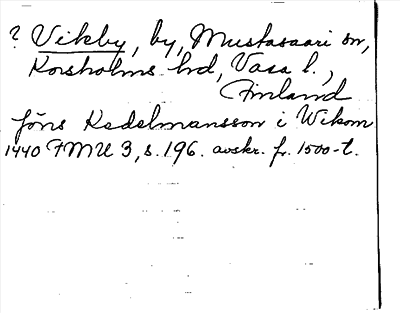 ? Vikby, by, Mustasaari sn,
Korsholms hd, Vasa l.,
Finland
Jöns Kedelmansson i Wikom
1440 FMU 3, s. 196. avskr. fr. 1500-t.